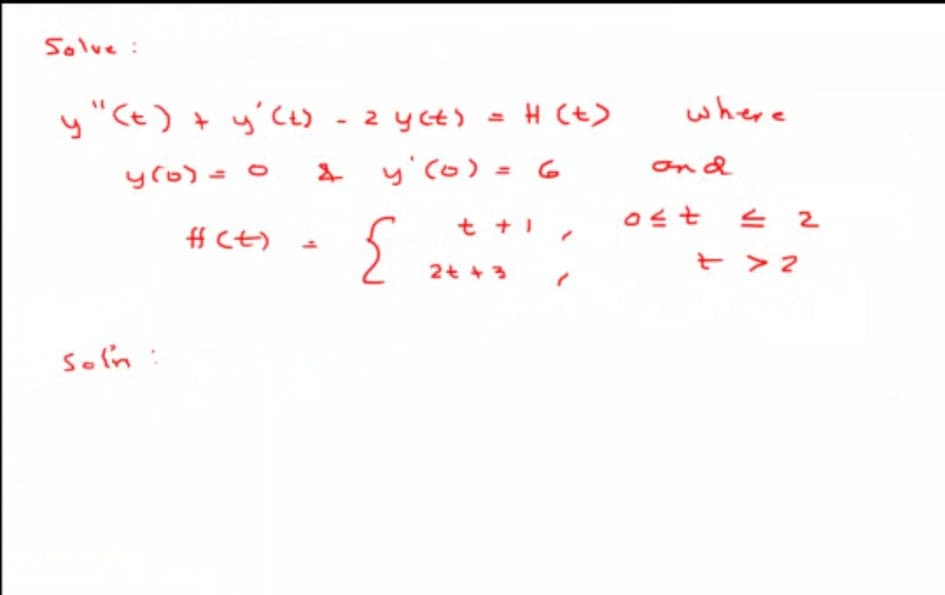 Solve :
y"(t) + y'(t) - 2 y(t) = H(t) where
y(0) = 0 & y'(0) = 6 and
H(t) = { t + 1 , 0 ≤ t ≤ 2
2t + 3 , t > 2
Sol'n :